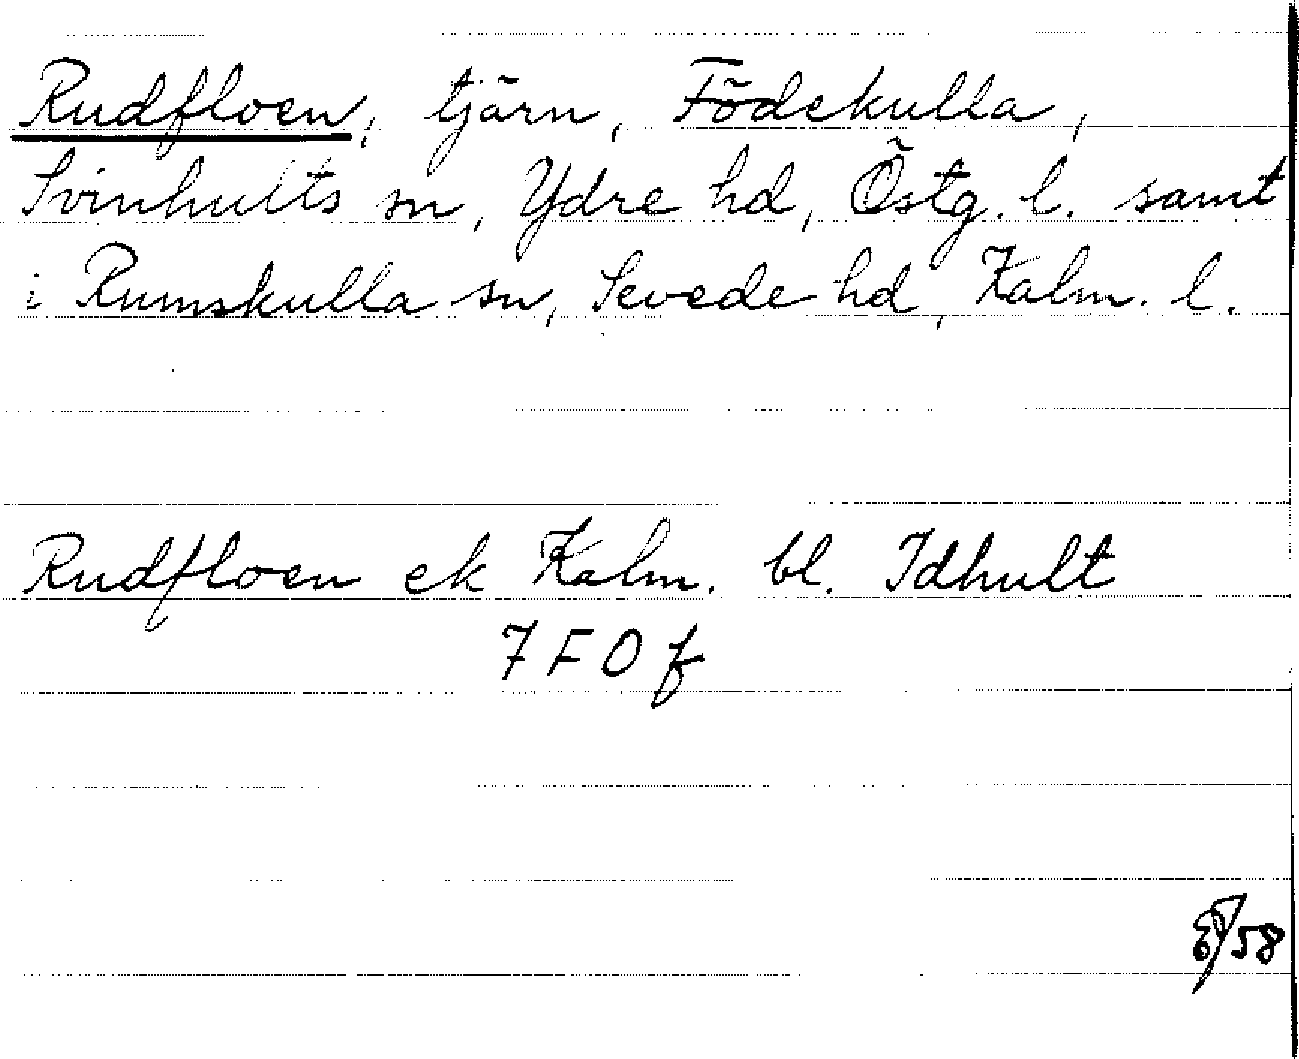 Rudfloen, tjärn, Födekulla,
Svinhults sn, Ydre hd, Östg. l. samt
i Rumskulla sn, Sevede hd, Kalm. l.
Rudfloen ek Kalm. bl. Idhult
7 F 0 f
/58